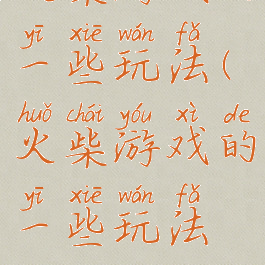 yī xiē wán fǎ
一些玩法(
huǒ chái yóu xì de
火柴游戏的
yī xiē wán fǎ
一些玩法